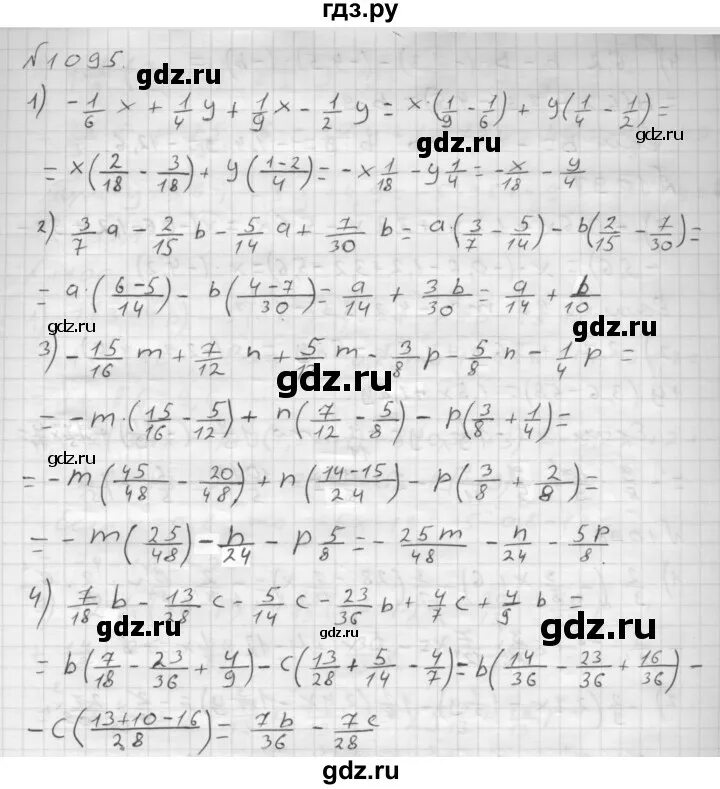 гдз.ру
№1095.
gdz.ru
1) -1/6 x + 1/4 y + 1/9 x - 1/2 y = x·(1/9 - 1/6) + y(1/4 - 1/2) =
gdz.ru gdz.ru
= x(2/18 - 3/18) + y((1-2)/4) = -x 1/18 - y 1/4 = -x/18 - y/4
gdz.ru
2) 3/7 a - 2/15 b - 5/14 a + 7/30 b = a·(3/7 - 5/14) - b(2/15 - 7/30) =
gdz.ru gdz.ru
= a·((6-5)/14) - b((4-7)/30) = a/14 + 3b/30 = a/14 + b/10
gdz.ru gdz.ru
3) -15/16 m + 7/12 n + 5/12 m - 3/8 p - 5/8 · n - 1/4 p =
gdz.ru
= -m·(15/16 - 5/12) + n(7/12 - 5/8) - p(3/8 + 1/4) =
gdz.ru gdz.ru
= -m(45/48 - 20/48) + n((14-15)/24) - p(3/8 + 2/8) =
gdz.ru gdz.ru
= -m(25/48) - n/24 - p 5/8 = -25m/48 - n/24 - 5p/8.
gdz.ru
4) 7/18 b - 13/28 c - 5/14 c - 23/36 b + 4/7 c + 4/9 b =
gdz.ru gdz.ru gdz.ru
= b(7/18 - 23/36 + 4/9) - c(13/28 + 5/14 - 4/7) = b(14/36 - 23/36 + 16/36) -
gdz.ru gdz.ru
- c((13+10-16)/28) = 7b/36 - 7c/28
gdz.ru
gdz.ru